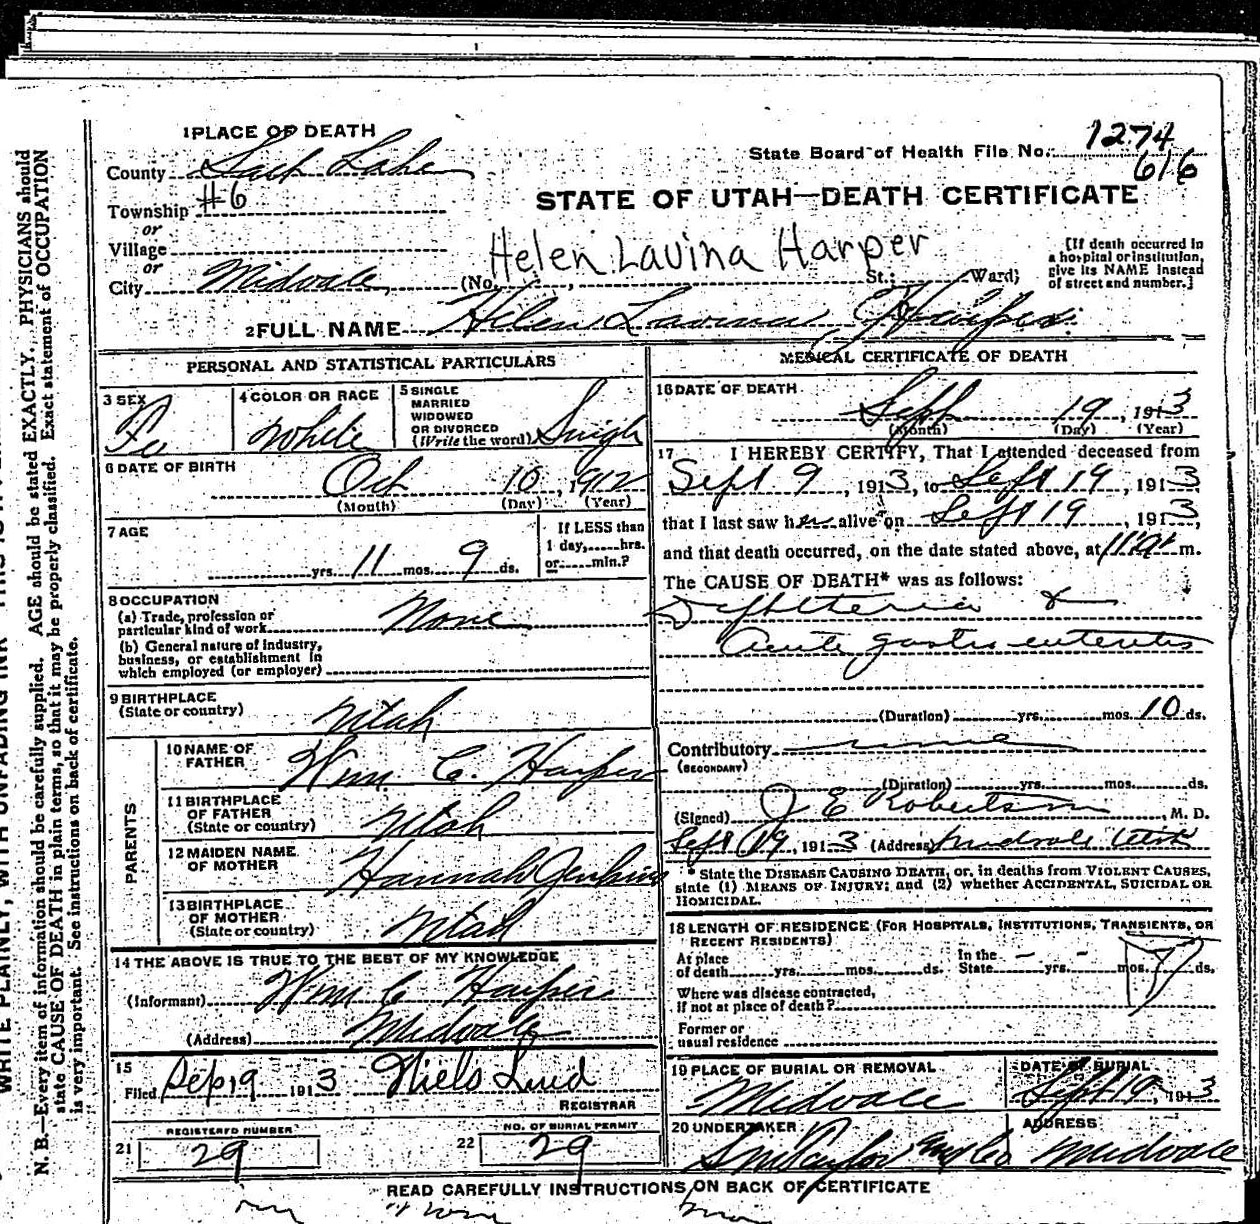 1 PLACE OF DEATH
County Salt Lake
Township #6
or
Village
or
City Midvale (No. St.; Ward)
State Board of Health File No. 1274
616
STATE OF UTAH—DEATH CERTIFICATE
Helen Lavina Harper
[If death occurred in
a hospital or institution,
give its NAME instead
of street and number.]
2 FULL NAME Helen Lavina Harper
PERSONAL AND STATISTICAL PARTICULARS
3 SEX
Fe
4 COLOR OR RACE
White
5 SINGLE
MARRIED
WIDOWED
OR DIVORCED
(Write the word) Single
6 DATE OF BIRTH
Oct 10, 1912
(Month) (Day) (Year)
7 AGE
yrs. 11 mos. 9 ds.
If LESS than
1 day, hrs.
or min.?
8 OCCUPATION
(a) Trade, profession or
particular kind of work None
(b) General nature of industry,
business, or establishment in
which employed (or employer)
9 BIRTHPLACE
(State or country) Utah
PARENTS
10 NAME OF
FATHER Wm. C. Harper
11 BIRTHPLACE
OF FATHER
(State or country) Utah
12 MAIDEN NAME
OF MOTHER Hannah Jenkins
13 BIRTHPLACE
OF MOTHER
(State or country) Utah
14 THE ABOVE IS TRUE TO THE BEST OF MY KNOWLEDGE
(Informant) Wm C Harper
(Address) Midvale
15
Filed Sep 19 1913 Niels Lind
REGISTRAR
21 REGISTERED NUMBER
29
22 NO. OF BURIAL PERMIT
29
MEDICAL CERTIFICATE OF DEATH
16 DATE OF DEATH
Sept 19, 1913
(Month) (Day) (Year)
17 I HEREBY CERTIFY, That I attended deceased from
Sept 9, 1913, to Sept 19, 1913
that I last saw her alive on Sept 19, 1913,
and that death occurred, on the date stated above, at 11 a m.
The CAUSE OF DEATH* was as follows:
Diphtheria &
Acute gastro enteritis
(Duration) yrs. mos. 10 ds.
Contributory none
(SECONDARY)
(Duration) yrs. mos. ds.
(Signed) J E Robertson, M. D.
Sept 19, 1913 (Address) Midvale Utah
* State the DISEASE CAUSING DEATH, or, in deaths from VIOLENT CAUSES,
state (1) MEANS OF INJURY; and (2) whether ACCIDENTAL, SUICIDAL OR
HOMICIDAL.
18 LENGTH OF RESIDENCE (FOR HOSPITALS, INSTITUTIONS, TRANSIENTS, OR
RECENT RESIDENTS)
At place
of death yrs. mos. ds. In the
State yrs. mos. ds.
Where was disease contracted,
if not at place of death?
Former or
usual residence
19 PLACE OF BURIAL OR REMOVAL
Midvale
DATE OF BURIAL
Sept 19, 1913
20 UNDERTAKER
ADDRESS
Midvale
READ CAREFULLY INSTRUCTIONS ON BACK OF CERTIFICATE
N. B.—Every item of information should be carefully supplied. AGE should be stated EXACTLY. PHYSICIANS should
state CAUSE OF DEATH in plain terms, so that it may be properly classified. Exact statement of OCCUPATION
is very important. See instructions on back of certificate.
WRITE PLAINLY, WITH UNFADING INK